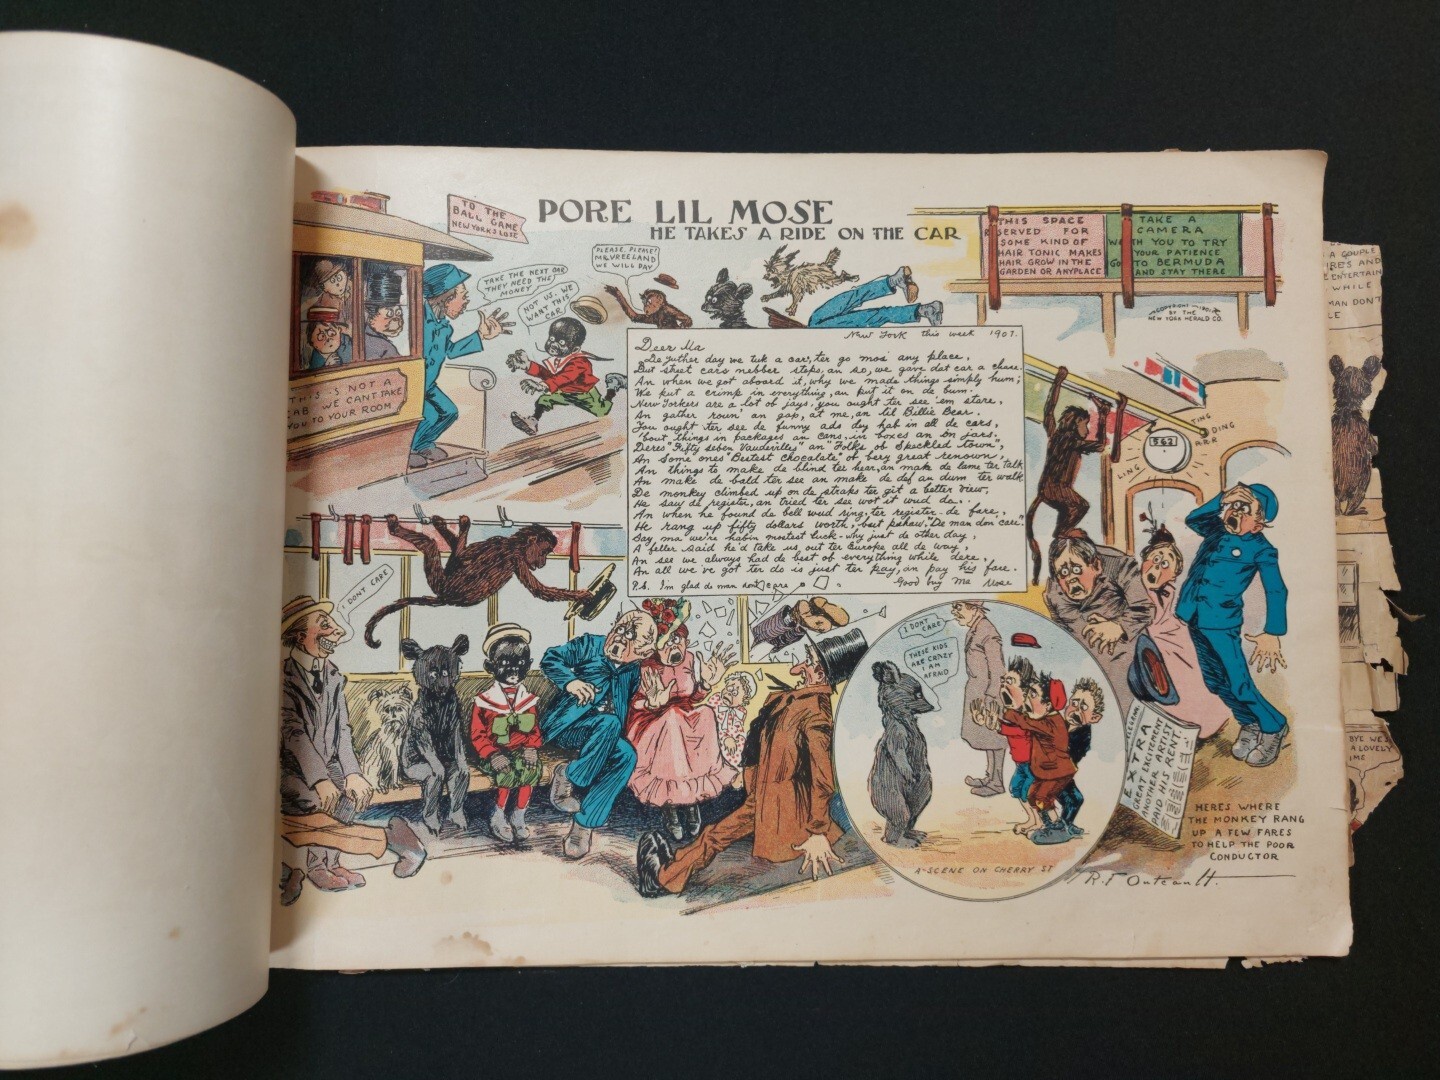 PORE LIL MOSE
HE TAKES A RIDE ON THE CAR
TO THE
BALL GAME
NEW YORKS LOSE
THIS IS NOT A
CAB WE CANT TAKE
YOU TO YOUR ROOM
TAKE THE NEXT ONE
THEY NEED THE
MONEY
NOT US. WE
WANT THIS
CAR
PLEASE, PLEASE!
MR. VREELAND
WE WILL PAY
THIS SPACE
RESERVED FOR
SOME KIND OF
HAIR TONIC MAKES
HAIR GROW IN THE
GARDEN OR ANYPLACE
TAKE A
CAMERA
WITH YOU TO TRY
YOUR PATIENCE
GO TO BERMUDA
AND STAY THERE
BY THE
NEW YORK HERALD CO.
New York this week 1901.
Deer Ma
De yuther day we tuk a car, ter go mos' any place,
But street cars nebber steps, an so, we gave dat car a chase.
An when we got aboard it, why we made things simply hum;
We put a crimp in everything, an put it on de bum.
New Yorkers are a lot ob jays, you ought ter see 'em stare,
An gather roun' an gap, at me, an lil Billie Bear.
You ought ter see de funny ads dey hab in all de cars,
'bout things in packages an cans, in boxes an in jars.
Deres "Fifty seben Vaudevilles" an "Folks ob Speckled town",
An some ones "Bestest Chocolate" ob bery great renown,
An things to make de blind ter hear, an make de lame ter talk
An make de bald ter see an make de def an dum ter walk
De monkey climbed up on de straks ter git a better view,
He saw de register, an tried ter see wot it wud do..
An when he found de bell wud ring, ter register de fare,
He rang up fifty dollars worth, but pshaw, "De man don care".
Say, ma we're habin mostest luck - why just de other day,
A feller said he'd take us out ter Europe all de way,
An see we always had de best ob everything while dere,
An all we've got ter do is just ter pay, an pay his fare.
P.S. I'm glad de man don't care
Good buy Ma Mose
562
TING
DING
A R R R
LING
I DONT CARE
I DONT
CARE
THESE KIDS
ARE CRAZY
I AM
AFRAID
A-SCENE ON CHERRY ST
EXTRA
GREAT EXCITEMENT
ANOTHER ARTIST
PAID HIS RENT.
HERES WHERE
THE MONKEY RANG
UP A FEW FARES
TO HELP THE POOR
CONDUCTOR
R.F Outcault.
A COUPLE
IRES AND
ENTERTAIN
WHILE
MAN DON'T
BYE WES
A LOVELY
IME